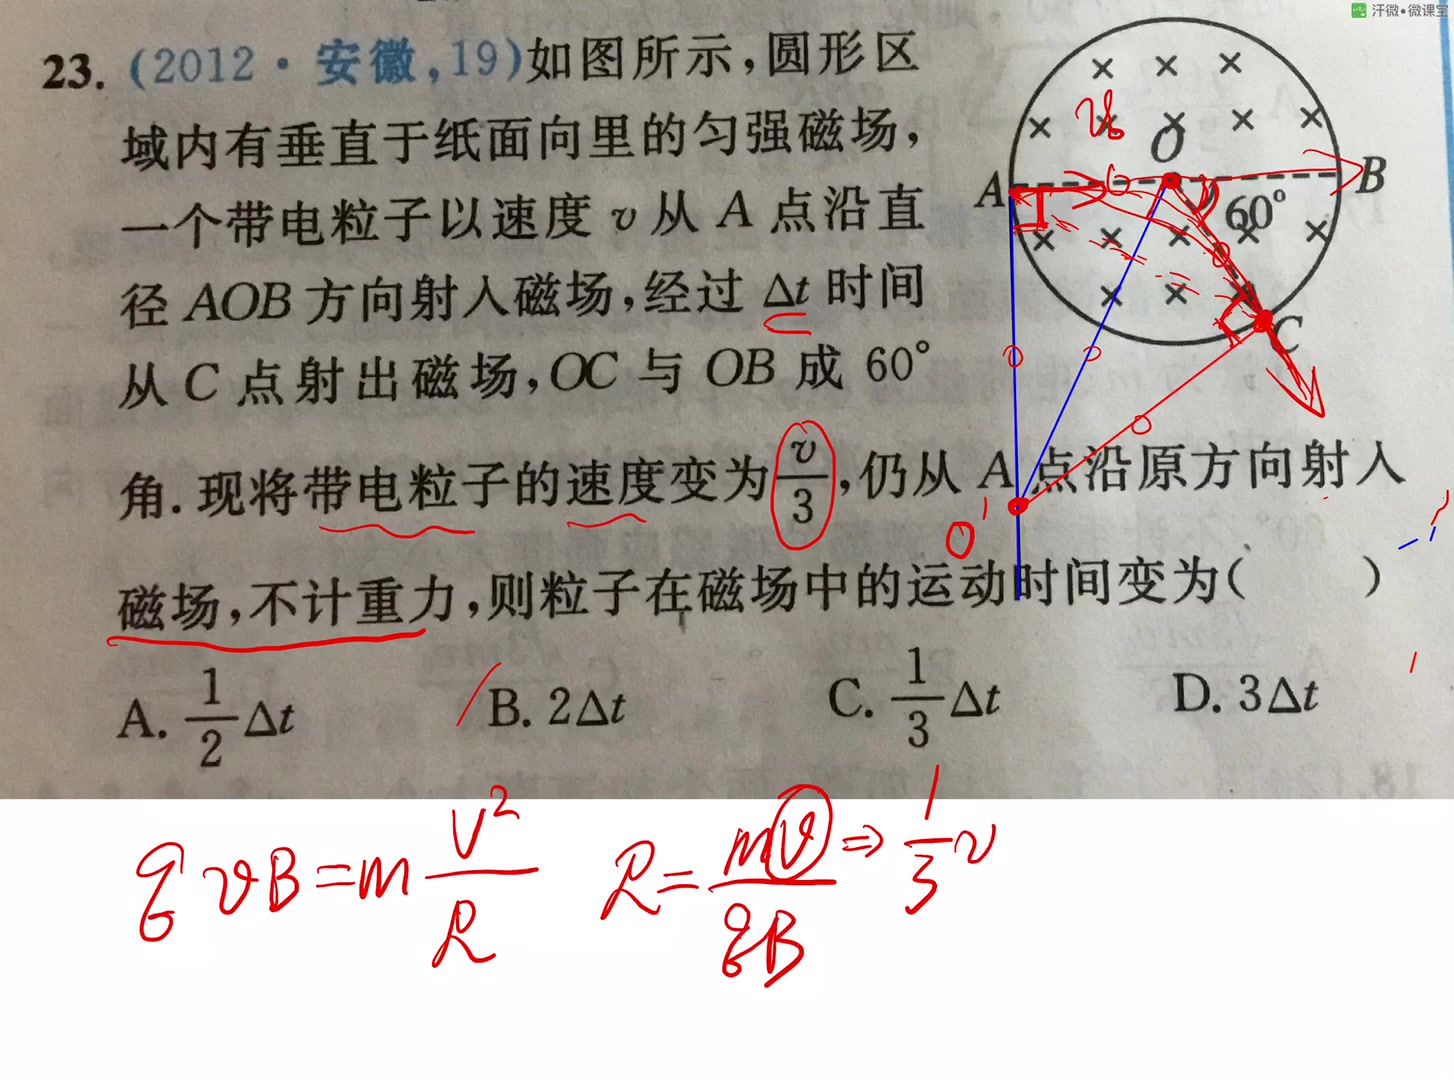 汗微•微课宝
23. (2012·安徽,19)如图所示,圆形区
域内有垂直于纸面向里的匀强磁场,
一个带电粒子以速度 v 从 A 点沿直
径 AOB 方向射入磁场,经过 Δt 时间
从 C 点射出磁场,OC 与 OB 成 60°
角.现将带电粒子的速度变为 v/3,仍从 A 点沿原方向射入
磁场,不计重力,则粒子在磁场中的运动时间变为(  )
A. 1/2 Δt B. 2Δt C. 1/3 Δt D. 3Δt
A O B
60°
C
O'
qvB=m v²/R R=mv/qB ⇒ 1/3 v